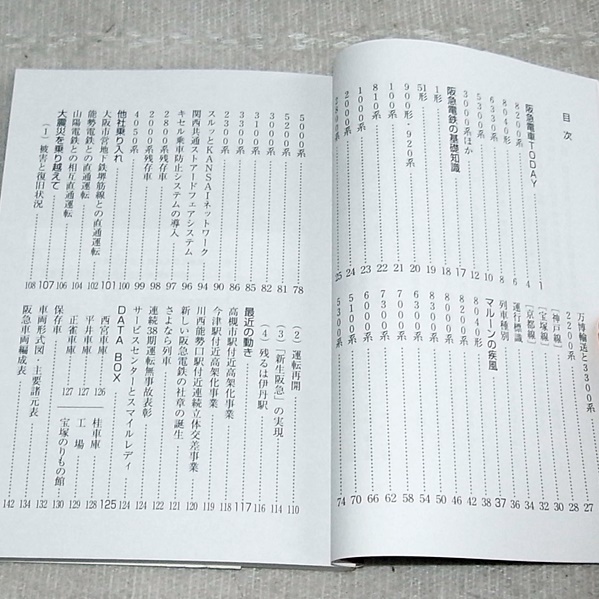 目次
阪急電車TODAY……1
8200系……4
8040形……6
5300系ほか
阪急電鉄の基礎知識
1形
51形
900形・920形
810系
1000系
2000系……24
2800系……25
万博輸送と3300系……27
2200系……28
〔神戸線〕……30
〔宝塚線〕……32
〔京都線〕……34
運行標識
列車種別
マルーンの疾風……37
8040形
8200系
8000系
7000系
6000系
5300系……74
5000系……78
5200系……81
3000系
3100系
3300系
2300系
スルッとKANSAIネットワーク
関西共通ストアードフェアシステム
キセル乗車防止システムの導入
2800系残存車
2000系残存車
4050系……100
他社乗り入れ……101
大阪市営地下鉄堺筋線との直通運転……102
能勢電鉄との直通運転……104
山陽電鉄との相互直通運転……106
大震災を乗り越えて……107
(1) 被害と復旧状況……108
(2) 運転再開……110
(3) 「新生阪急」の実現……114
(4) 残るは伊丹駅……116
最近の動き……117
高槻市駅付近高架化事業……118
今津駅付近高架化事業……119
川西能勢口駅付近連続立体交差事業……120
新しい阪急電鉄の社章の誕生……121
さよなら列車……122
連続38期運転無事故表彰……124
サービスセンターとスマイルレディ……124
DATA BOX……125
西宮車庫……126
平井車庫……127
正雀車庫……127
桂車庫……128
工場……129
宝塚のりもの館……130
保存車……132
車両形式図・主要諸元表……134
阪急車両編成表……142